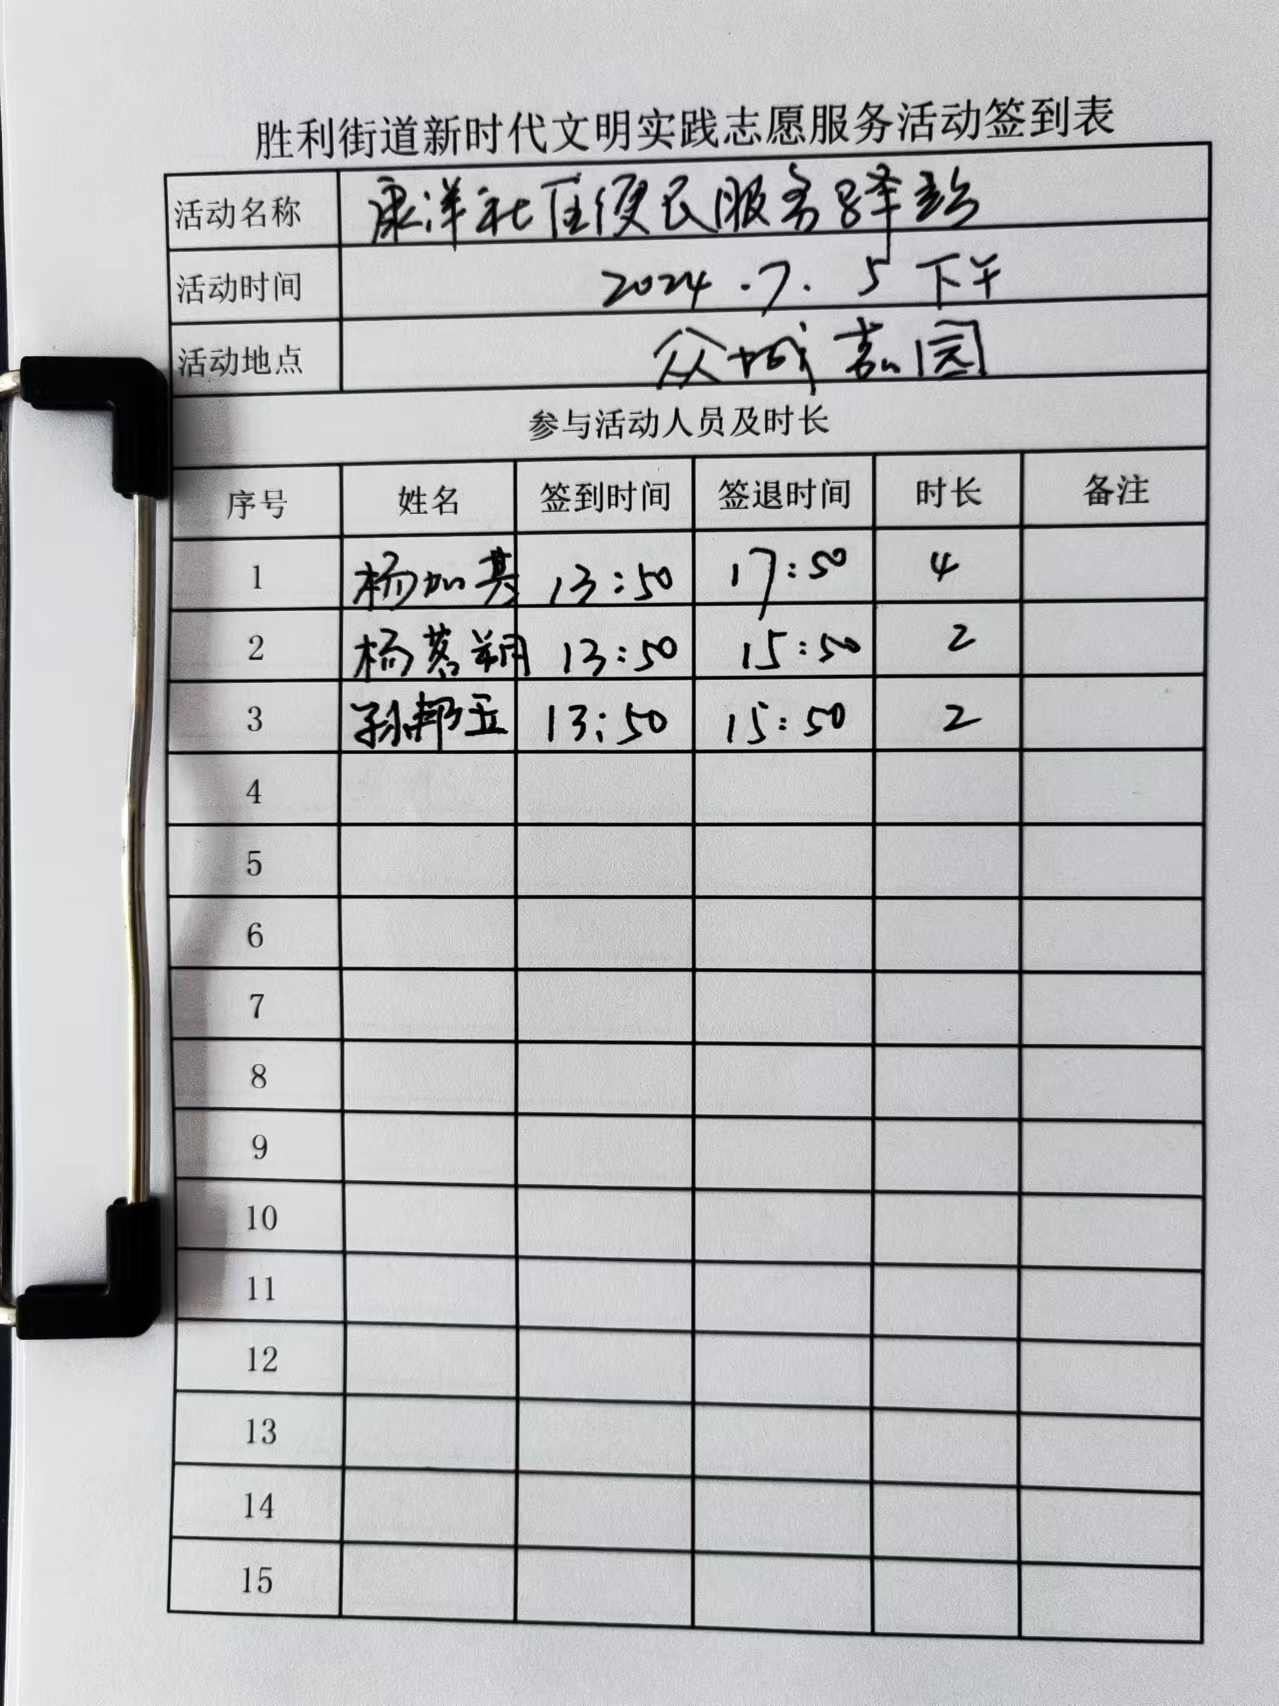 胜利街道新时代文明实践志愿服务活动签到表
活动名称 康洋社区便民服务驿站
活动时间 2024.7.5 下午
活动地点 众城嘉园
参与活动人员及时长
序号 姓名 签到时间 签退时间 时长 备注
1 杨加其 13:50 17:50 4
2 杨茗翔 13:50 15:50 2
3 孙邦玉 13:50 15:50 2
4
5
6
7
8
9
10
11
12
13
14
15